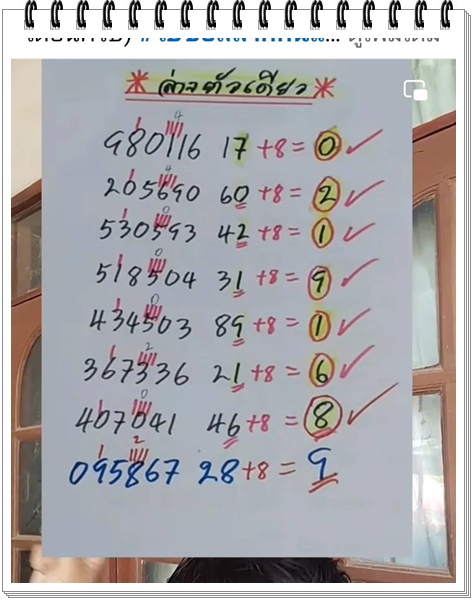 * ล่างตัวเดียว *
4
980116 17 +8 = 0 ✓
4
205690 60 +8 = 2 ✓
0
530593 42 +8 = 1 ✓
0
518504 31 +8 = 9 ✓
0
434503 89 +8 = 1 ✓
2
367336 21 +8 = 6 ✓
0
407041 46 +8 = 8 ✓
2
095867 28 +8 = 9